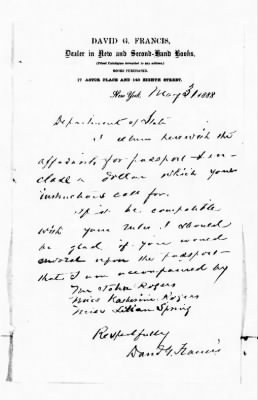 DAVID G. FRANCIS,
Dealer in New and Second-Hand Books,
(Priced Catalogues forwarded to any address.)
BOOKS PURCHASED.
17 ASTOR PLACE AND 142 EIGHTH STREET.
New York, May 31 1888
Department of State
I return herewith the
affidavits for passport & in-
close a dollar which your
instructions call for.
If it be compatible
with your rules I should
be glad if you would
record upon the passport
that I am accompanied by
Mr John Rogers
Miss Katherine Rogers
Miss Lillian Spring
Respectfully
David G. Francis